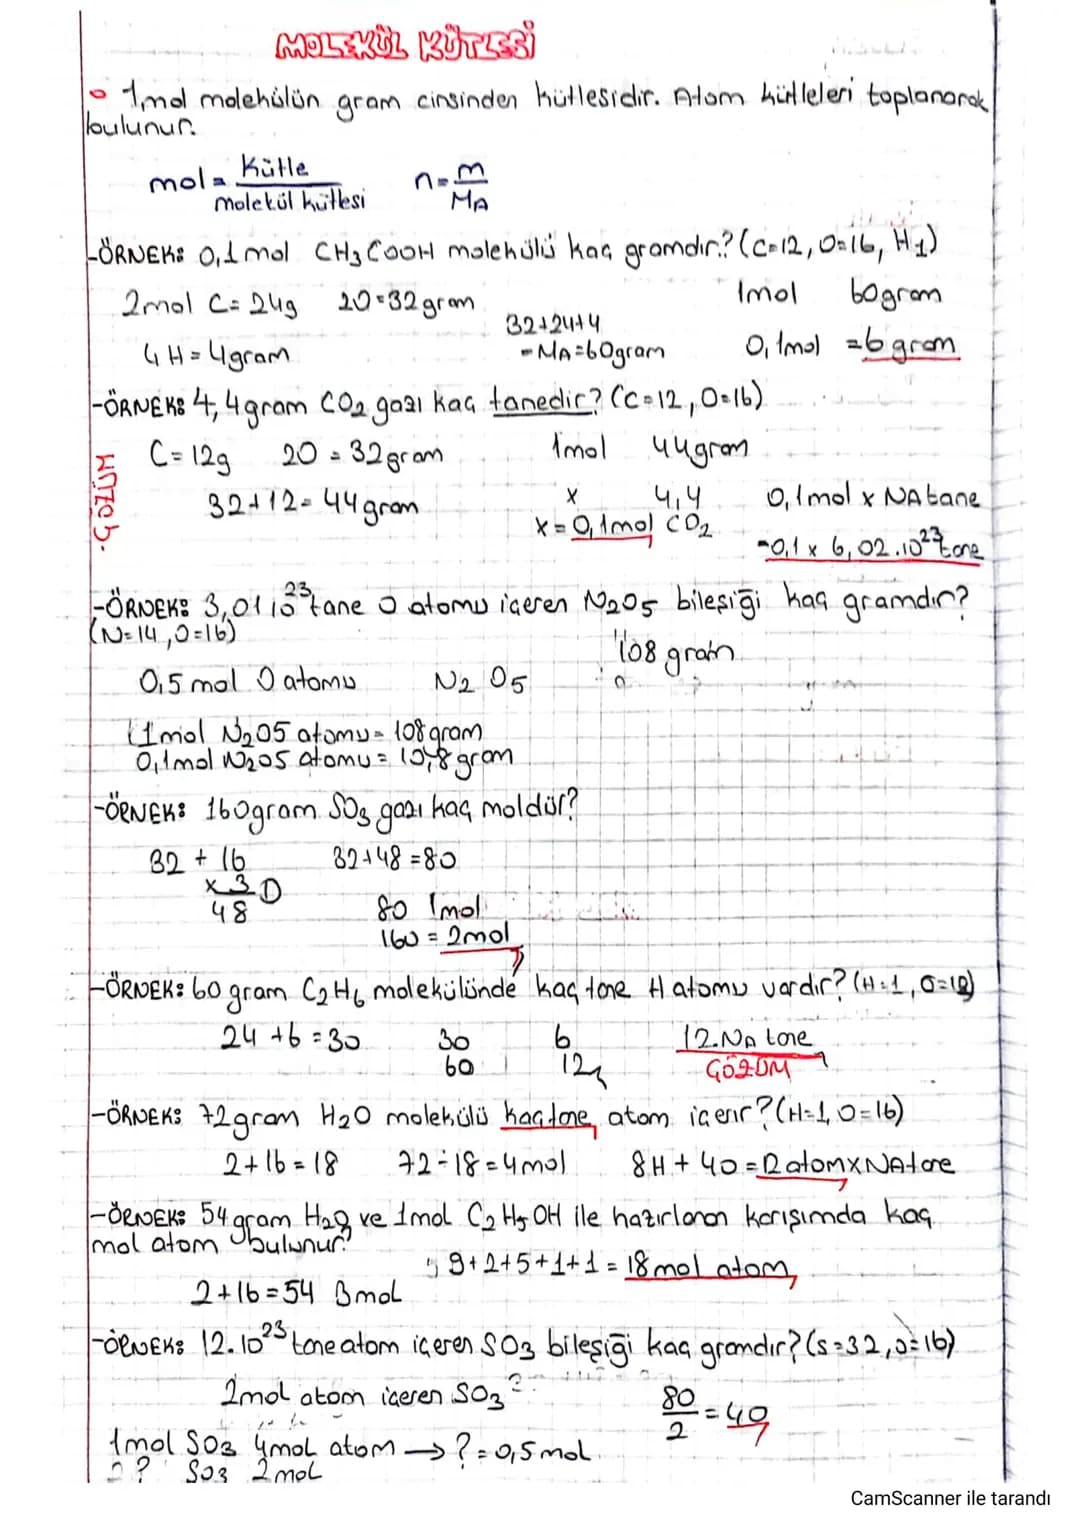 MOLEKÜL KÜTLESİ
• 1mol molekülün gram cinsinden kütlesidir. Atom kütleleri toplanarak
bulunur.
mol = Kütle / molekül kütlesi n = m / MA
-ÖRNEK: 0,1 mol CH3COOH molekülü kaç gramdır? (C=12, O=16, H1)
2mol C= 24g 2O=32 gram 1mol 60gram
4H=4gram 32+24+4 0,1mol =6 gram
-MA=60gram
-ÖRNEK: 4,4gram CO2 gazı kaç tanedir? (C=12, O=16)
C=12g 2O=32gram 1mol 44gram
32+12=44gram x 4,4 0,1mol x NA tane
x=0,1mol CO2 =0,1 x 6,02.10²³ tane
ÇÖZÜM
-ÖRNEK: 3,01 10²³ tane O atomu içeren N2O5 bileşiği kaç gramdır?
(N=14, O=16)
108 gram
0,5 mol O atomu N2 O5
1mol N2O5 atomu= 108gram
0,1mol N2O5 atomu= 10,8 gram
-ÖRNEK: 160gram SO3 gazı kaç moldür?
32 + 16 32+48=80
x 3
48
80 1mol
160 = 2mol
-ÖRNEK: 60 gram C2H6 molekülünde kaç tane H atomu vardır? (H=1,
24 +6=30 30 6 12.NA tane
60 12 ÇÖZÜM
-ÖRNEK: 72gram H2O molekülü kaç tane atom içerir? (H=1, O=16)
2+16=18 72÷18=4mol 8H + 4O = 12 atomxNA tane
-ÖRNEK: 54 gram H2O ve 1mol C2H5OH ile hazırlanan karışımda kaç
mol atom bulunur?
9+2+5+1+1=18mol atom
2+16=54 3mol
-ÖRNEK: 12.10²³ tane atom içeren SO3 bileşiği kaç gramdır? (S=32, O=16)
2mol atom içeren SO3 ? 80/2 = 40
1mol SO3 4mol atom → ?=0,5mol
? SO3 2mol
CamScanner ile tarandı